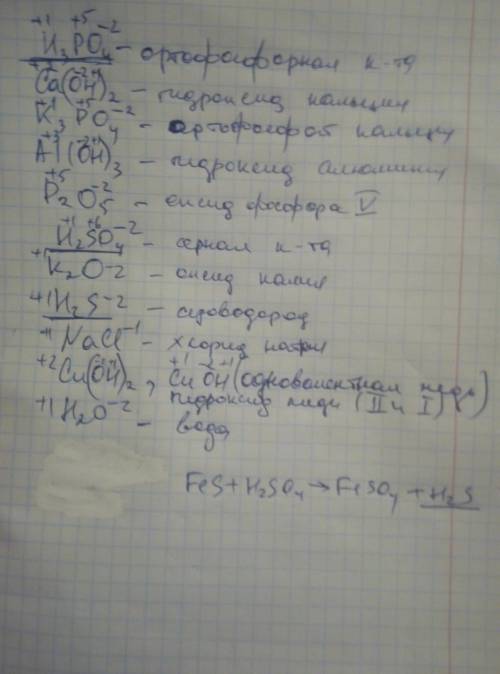 +1 +5 -2
H₃PO₄ - ортофосфорная к-та
Ca(OH)₂ - гидроксид кальция
+1 +5 -2
K₃PO₄ - ортофосфат кальция
+3 -2 +1
Al(OH)₃ - гидроксид алюминия
+5 -2
P₂O₅ - оксид фосфора V
+1 +6 -2
H₂SO₄ - серная к-та
+1 K₂O -2 - оксид калия
+1 H₂S -2 - сероводород
+1 NaCl -1 - хлорид натрия
+2 Cu(OH)₂, +1 -2 +1 CuOH (одновалентная медь)
гидроксид меди (II и I)
+1 H₂O -2 - вода
FeS + H₂SO₄ → FeSO₄ + H₂S